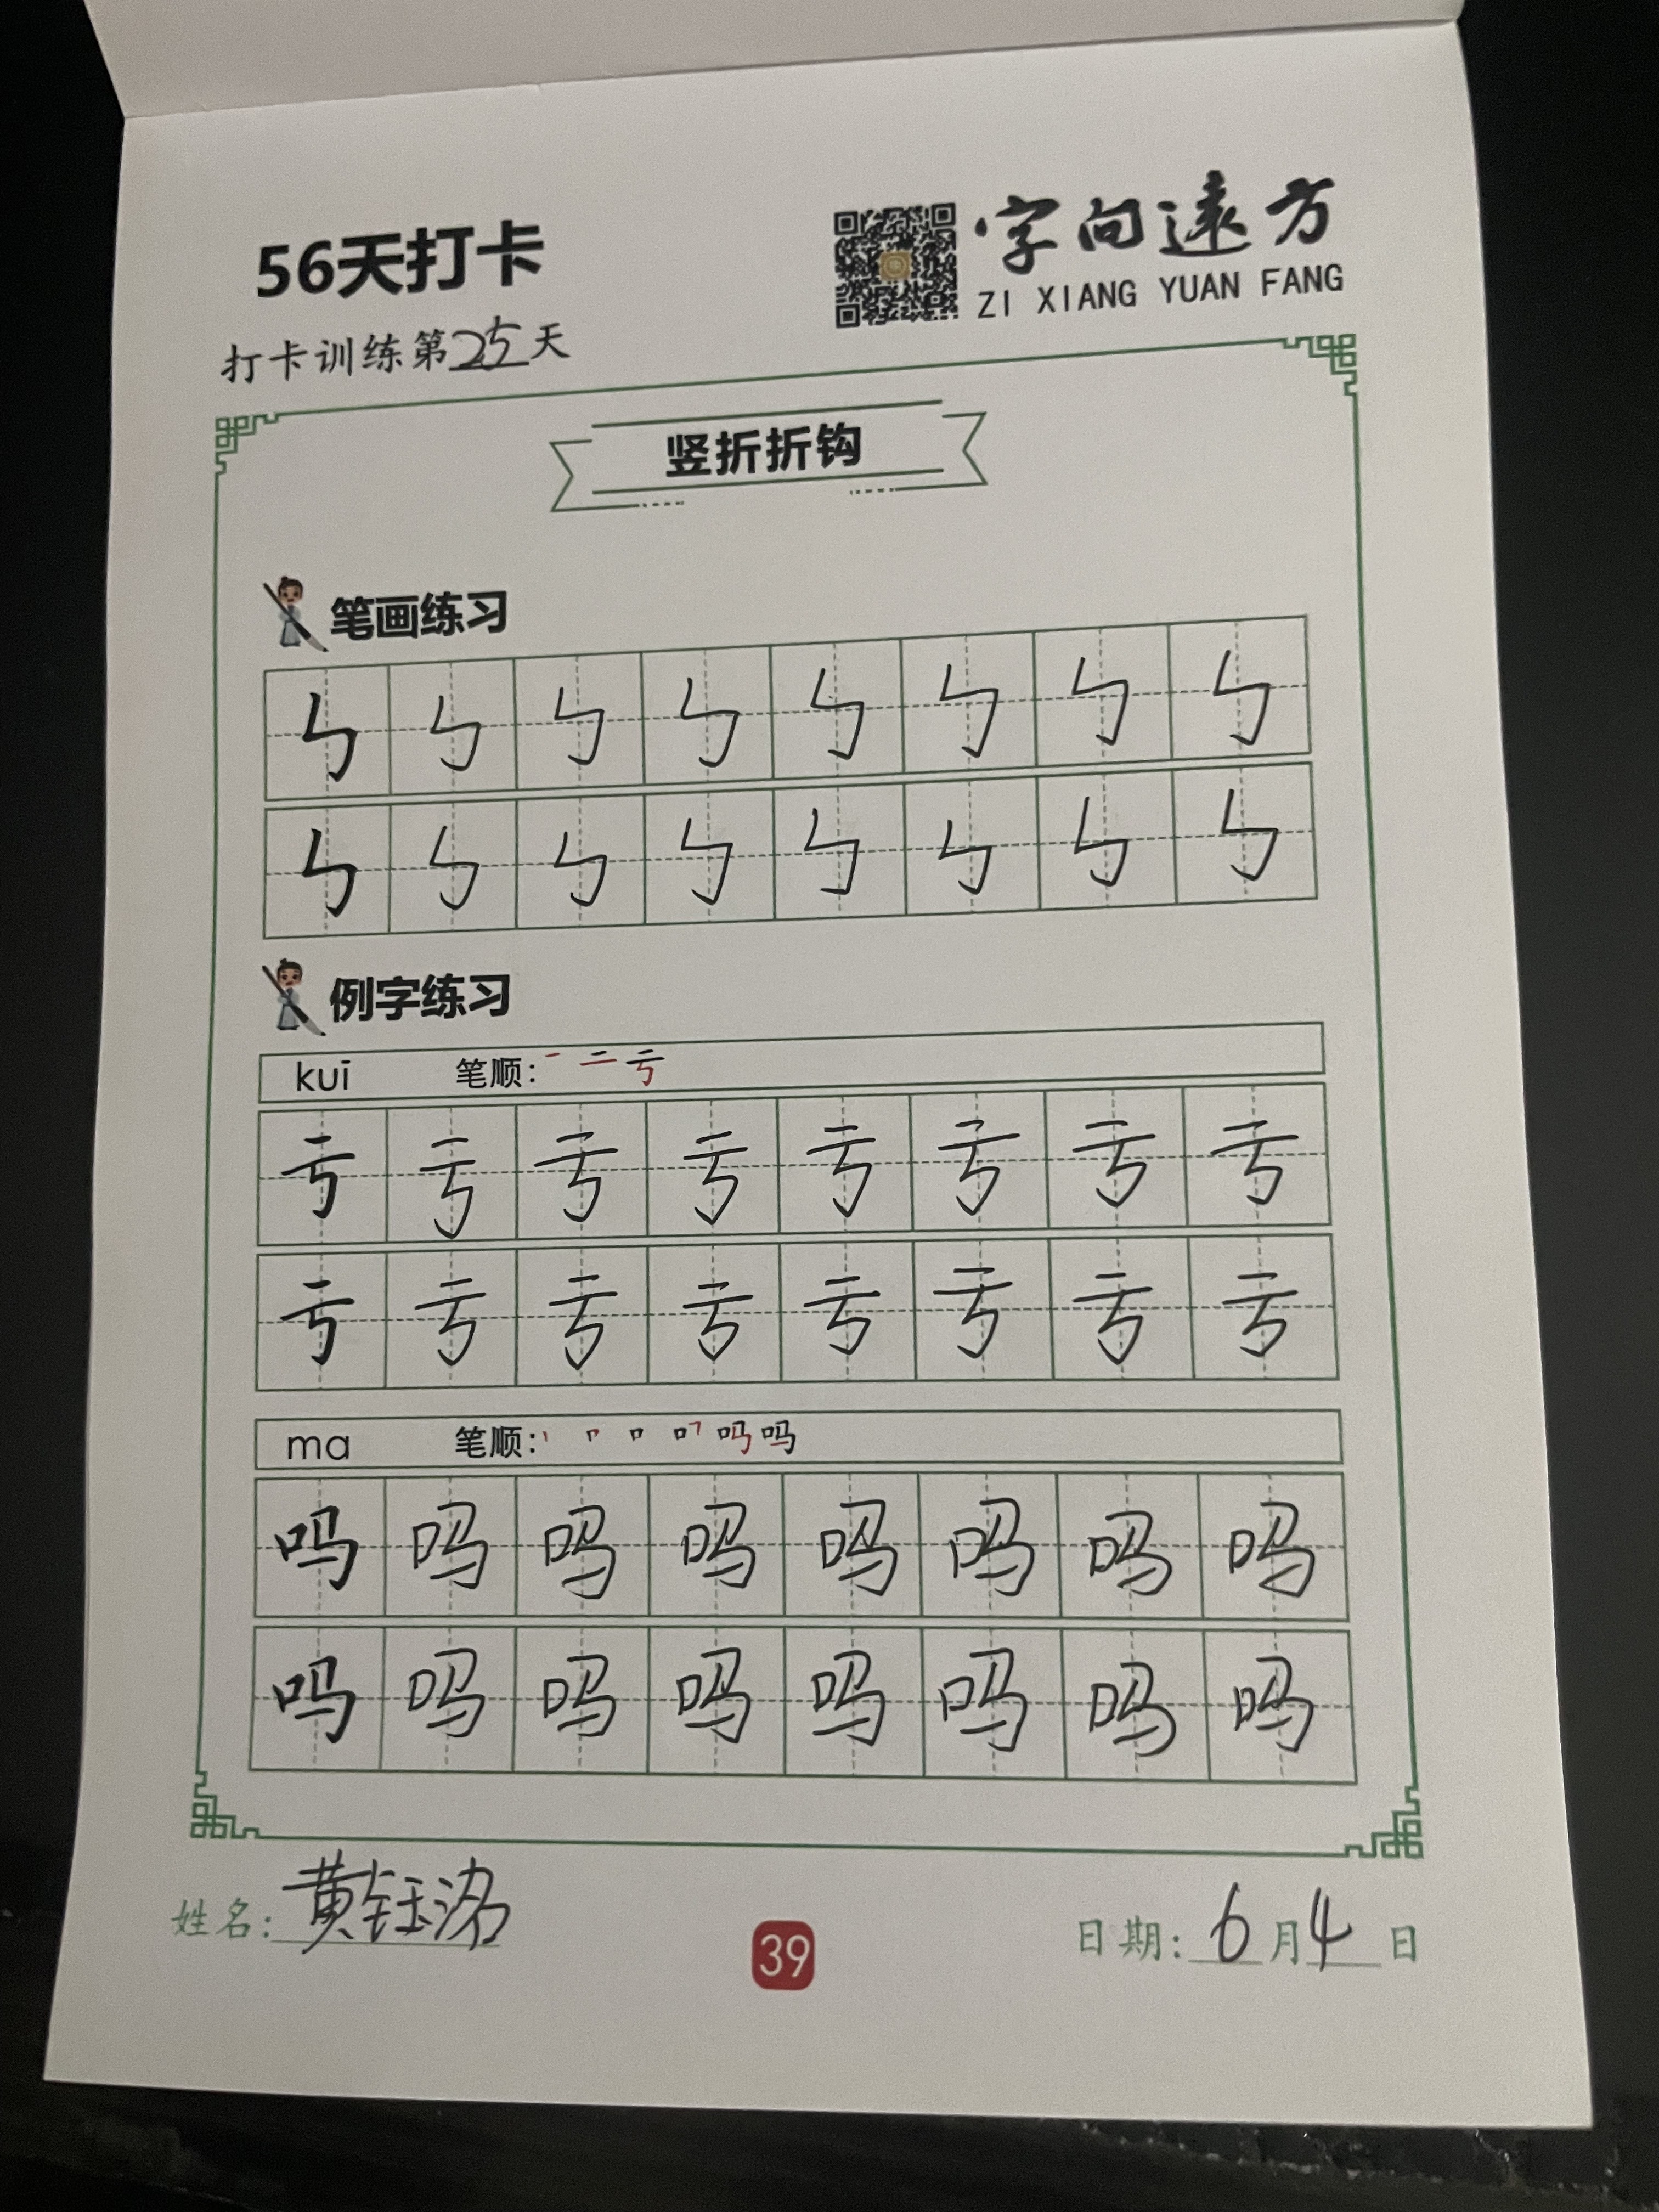 56天打卡
字向远方
ZI XIANG YUAN FANG
打卡训练第25天
竖折折钩
笔画练习
㇉ ㇉ ㇉ ㇉ ㇉ ㇉ ㇉ ㇉
㇉ ㇉ ㇉ ㇉ ㇉ ㇉ ㇉ ㇉
例字练习
kuī 笔顺: 一 二 亏
亏 亏 亏 亏 亏 亏 亏 亏
亏 亏 亏 亏 亏 亏 亏 亏
ma 笔顺: 吗
吗 吗 吗 吗 吗 吗 吗 吗
吗 吗 吗 吗 吗 吗 吗 吗
姓名: 黄钰
39
日期: 6月4日